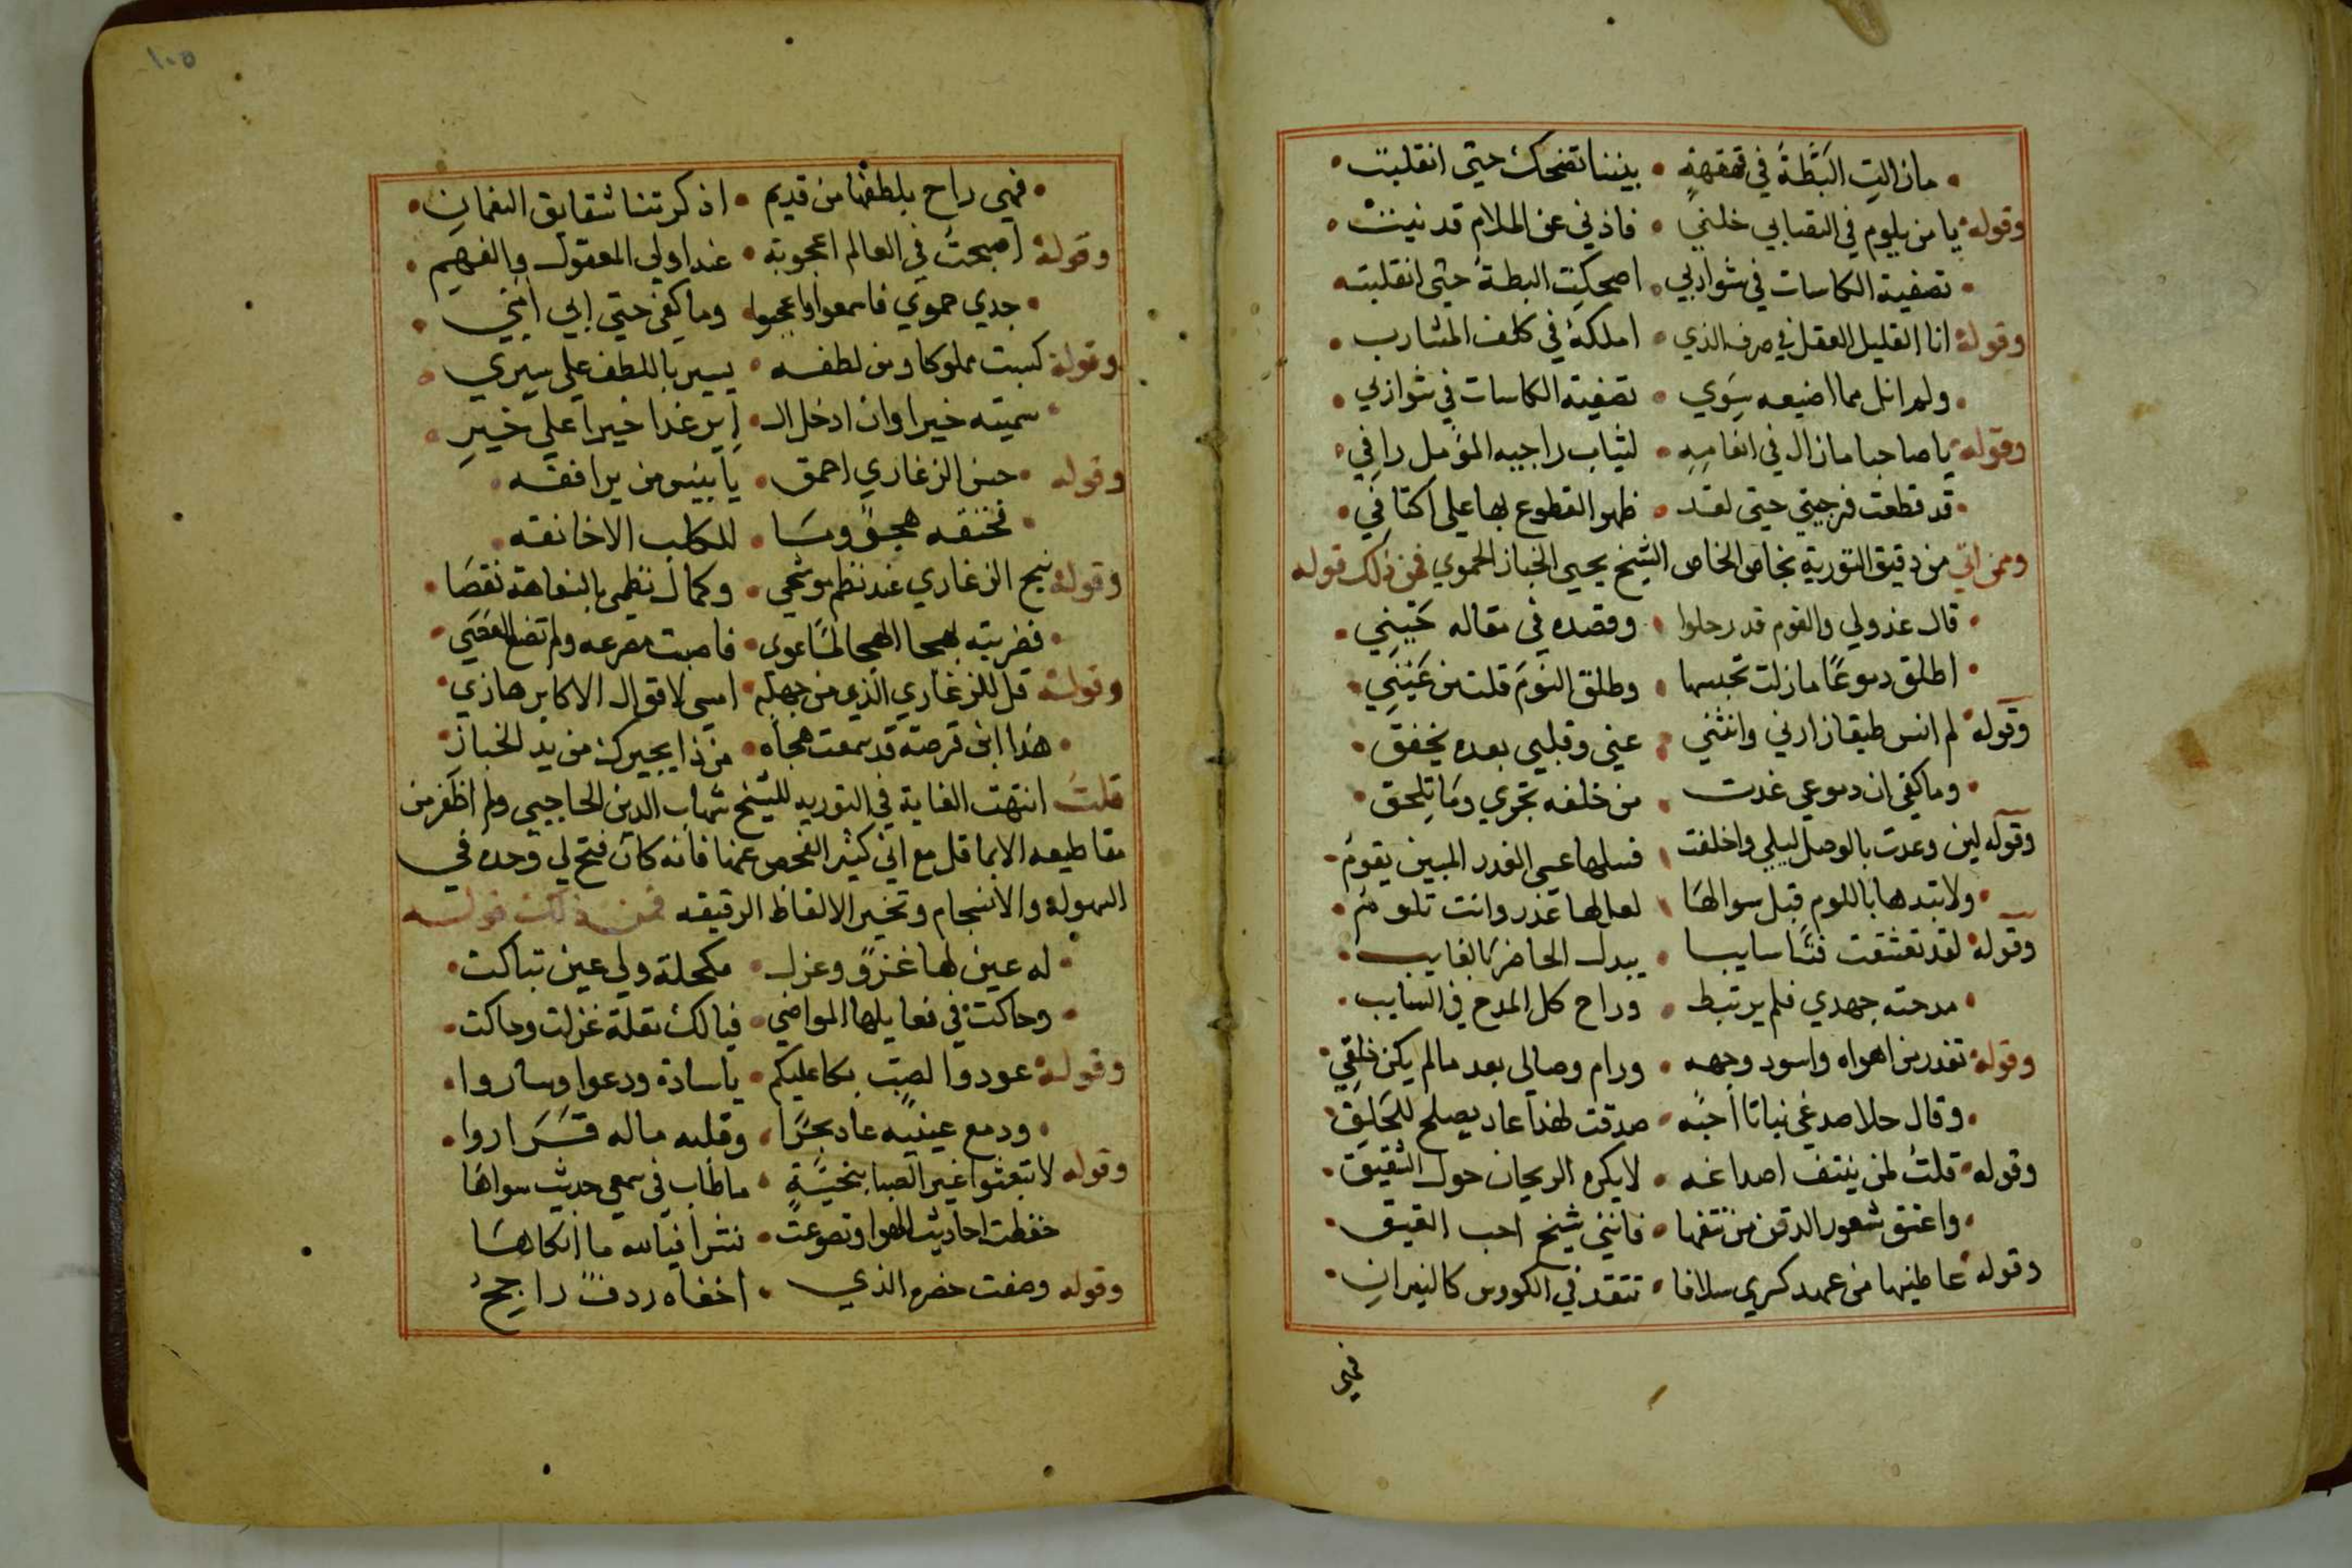 مازالت البَطّةُ في قهقهةٍ • بيننا تضحك حتى انقلبت
وقوله يا من يلوم في التصابي خلني • فاذني عن الملام قد نبت
تصفية الكاسات في شواربي • اضحكت البطة حتى انقلبت
وقوله انا القليل العقل في صرف الذي • املكه في كلف المشارب
ولم انل مما اضيعه سِوي • تصفية الكاسات في شواربي
وقوله يا صاحبا مازال في انعامِهِ • لثياب راجيه المؤمل رافي
قد قطعت فرجيتي حتى لقد • ظهر القطوع بها على اكتافي
وممن اتي من دقيق التورية بخاص الخاص الشيخ يحيي الخباز الحموي فمن ذلك قوله
قال عذولي والقوم قد رحلوا • وقصده في مقاله حَيْنِي
اطلق دموعًا مازلت تحبسها • وطلق النومَ قلت من عَيْنِي
وقوله لم انس طيفا زارني وانثني • عني وقلبي بعده يخفق
وما كفي ان دموعي غدت • من خلفه تجري ومَا تلحق
وقوله لين وعدت بالوصل ليلي واخلفت • فسلها عسي العذر المبين يقومُ
ولا تبدها باللوم قبل سوالهَا • لعل لها عذر وانت تلومُ
وقوله لقد تعشقت فتًا سايبا • يبدل الحاضر بالغايب
مدحته جهدي فلم يرتبط • وراح كل المدح في السايب
وقوله تعذر من اهواه واسود وجهه • ورام وصالي بعد مالم يكن خلقِي
وقال حلا صدغي نباتا أحبّه • صدقت لهذا عاد يصلح للحَلقِ
وقوله قلتُ لمن ينتف اصداغه • لا يكره الريحان حول الشقيق
واعتق شعور الدقن من نتفها • فانني شيخ احب العتيق
وقوله عاطنيها من عهد كسري سلافا • تتقد في الكووس كالنيرانِ
فهي
١٠٥
فهي راح بلطفها من قديم • اذكرتنا شقايق النعمانِ
وقوله أصبحتُ في العالم اعجوبة • عند اولي المعقول والفهم
جدي حموي فاسمعوا واعجبوا • وما كفي حتي ابي امّي
وقوله كسبت مملوكا ومن لطفه • يسير باللطف علي سيري
سميته خيرا وان ادخل الـ • اير غدا خيرا علي خيرِ
وقوله حسن الزغاري احمق • يا بيس من يرافقه
نخنقه هجوًا وما • للكلب الا خانقه
وقوله نبح الزغاري عند نظم موشحي • وكمال نظمي بالنباهة نقصَا
فضربته بهجا الهجا لمّا عوي • فاصبت مصرعه ولم تضع العَصَي
وقوله قل للزغاري الذي من جهله • امسي لاقوال الاكابر هازي
هذا ابن قرصة قد سمعت هجاه • من ذا يجيرك من يد الخبازِ
قلتُ انتهت الغاية في التوريه للشيخ شهاب الدين الحاجبي ولم اظفر من
مقاطيعه الا بما قل مع اني كثير الفحص عنها فانه كان فتح لي وحده في
السهولة والانسجام وتخير الالفاظ الرقيقه فمن ذلك قوله
له عين لها غزوٌ وغزل • مكحلة ولي عين تباكت
وحاكت في فعايلها المواضي • فيالك مقلة غزلت وحاكت
وقوله عودوا لصبّ بكا عليكم • يا سادة ودعوا وساروا
ودمع عينيه عاد بحرًا • وقلبه ماله قَرَاروا
وقوله لا تبعثوا غير الصبا بتحيّةٍ • ما طاب في سمعي حديث سواهَا
حفظت احاديث الهوا وتضوعت • نشرا فيالله ما اذكاهَا
وقوله وصفت خصره الذي • اخفاه ردفٌ راجحُ